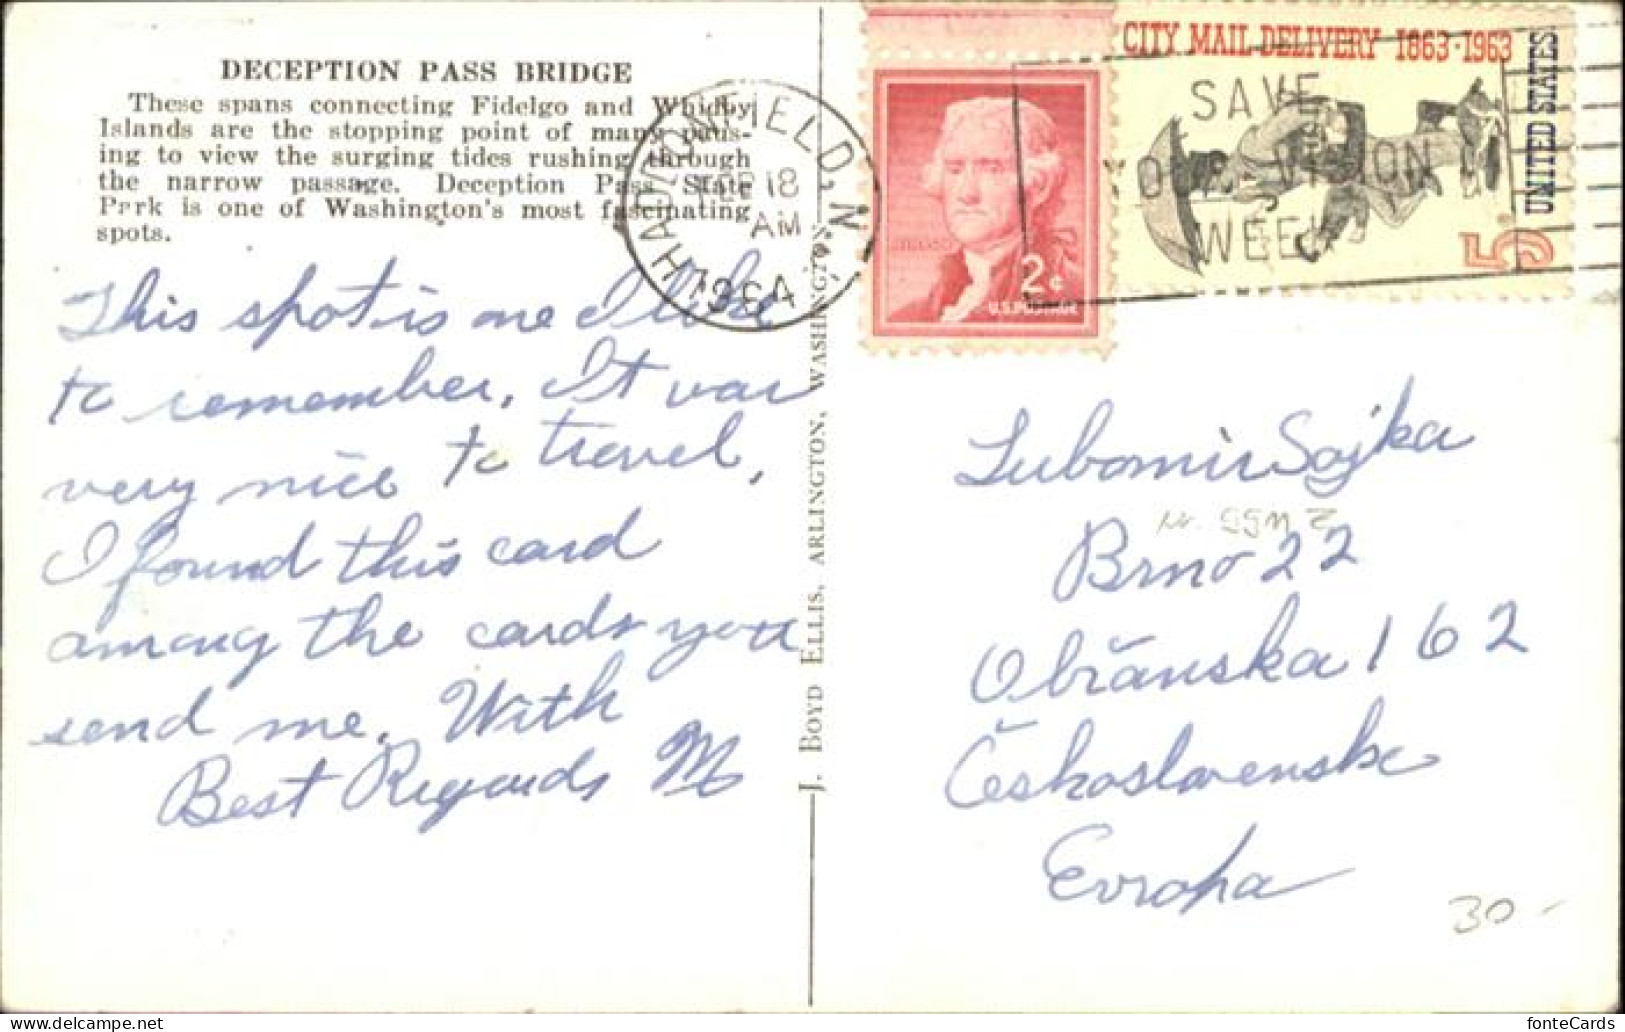 DECEPTION PASS BRIDGE
These spans connecting Fidelgo and Whidby
Islands are the stopping point of many paus-
ing to view the surging tides rushing through
the narrow passage. Deception Pass State
Park is one of Washington's most fascinating
spots.
This spot is one I like
to remember. It was
very nice to travel.
I found this card
among the cards you
send me. With
Best Regards M
J. BOYD ELLIS, ARLINGTON, WASHINGTON
18
AM
1964
SAVE
VISION
WEEK
2¢
U.S. POSTAGE
CITY MAIL DELIVERY 1863·1963
UNITED STATES
5
Lubomir Sojka
Brno 22
Obřanska 162
Československe
Evropa
30-
fonteCards